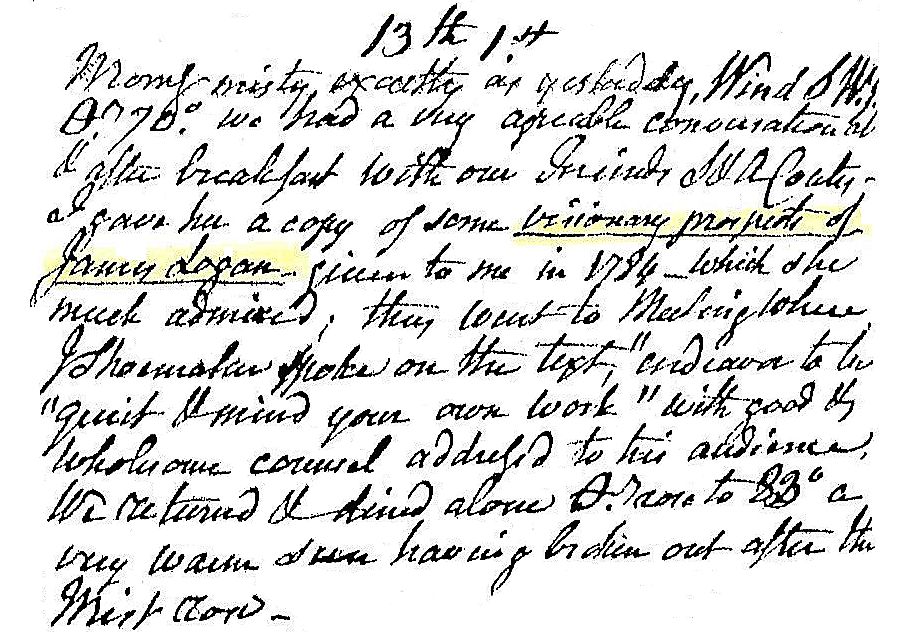 13th 1st
Morng misty exactly as yesterday, Wind S W.
70°. we had a very agreeable conversation at
& after breakfast with our Friends S & A Coates -
I gave her a copy of some visionary prospects of
James Logan given to me in 1784 which she
much admired; they went to Meeting where
J Shoemaker spoke on the text, "endeavor to be
"quiet & mind your own work" with good &
wholsome counsel addressed to his audience.
We returned & dined alone rose to 83° a
very warm sun having broken out after the
Mist rose -